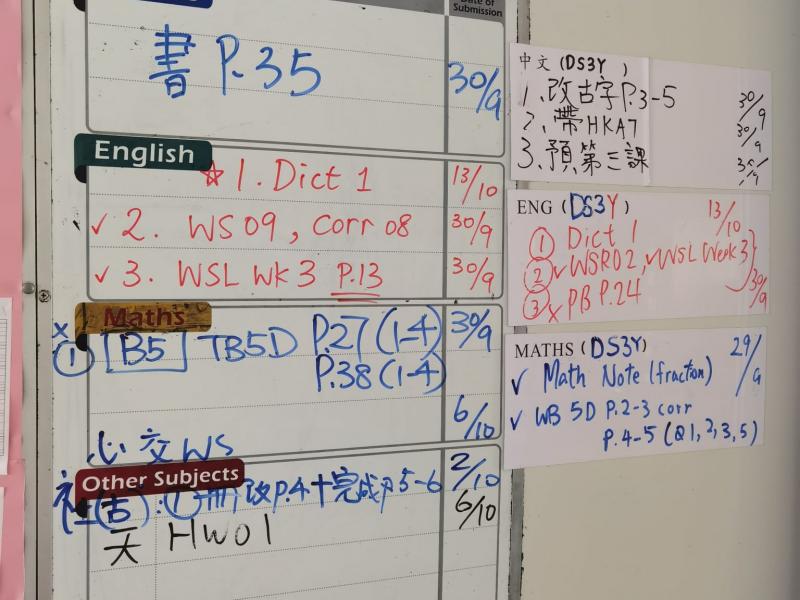 Date of
Submission
書 P.35 30/9
English
☆ 1. Dict 1 13/10
✓ 2. WS 09, Corr 08 30/9
✓ 3. WSL WK 3 P.13 30/9
Maths
x ① B5 TB5D P.27 (1-4) 30/9
P.38 (1-4)
6/10
心 交 WS
Other Subjects 2/10
社(古): ① 冊 改 P.4 十 完成 P.5-6
天 HW01 6/10
中文 (DS3Y)
1. 改古字 P.3-5 30/9
2. 帶 HKA7 30/9
3. 預 第三課
ENG (DS3Y) 13/10
① Dict 1
② ✓ WSR02, ✓ WSL Week 3
30/9
③ x PB P.24
MATHS (DS3Y) 29/9
✓ Math Note (fraction)
✓ WB 5D P.2-3 corr
P.4-5 (Q1,2,3,5)